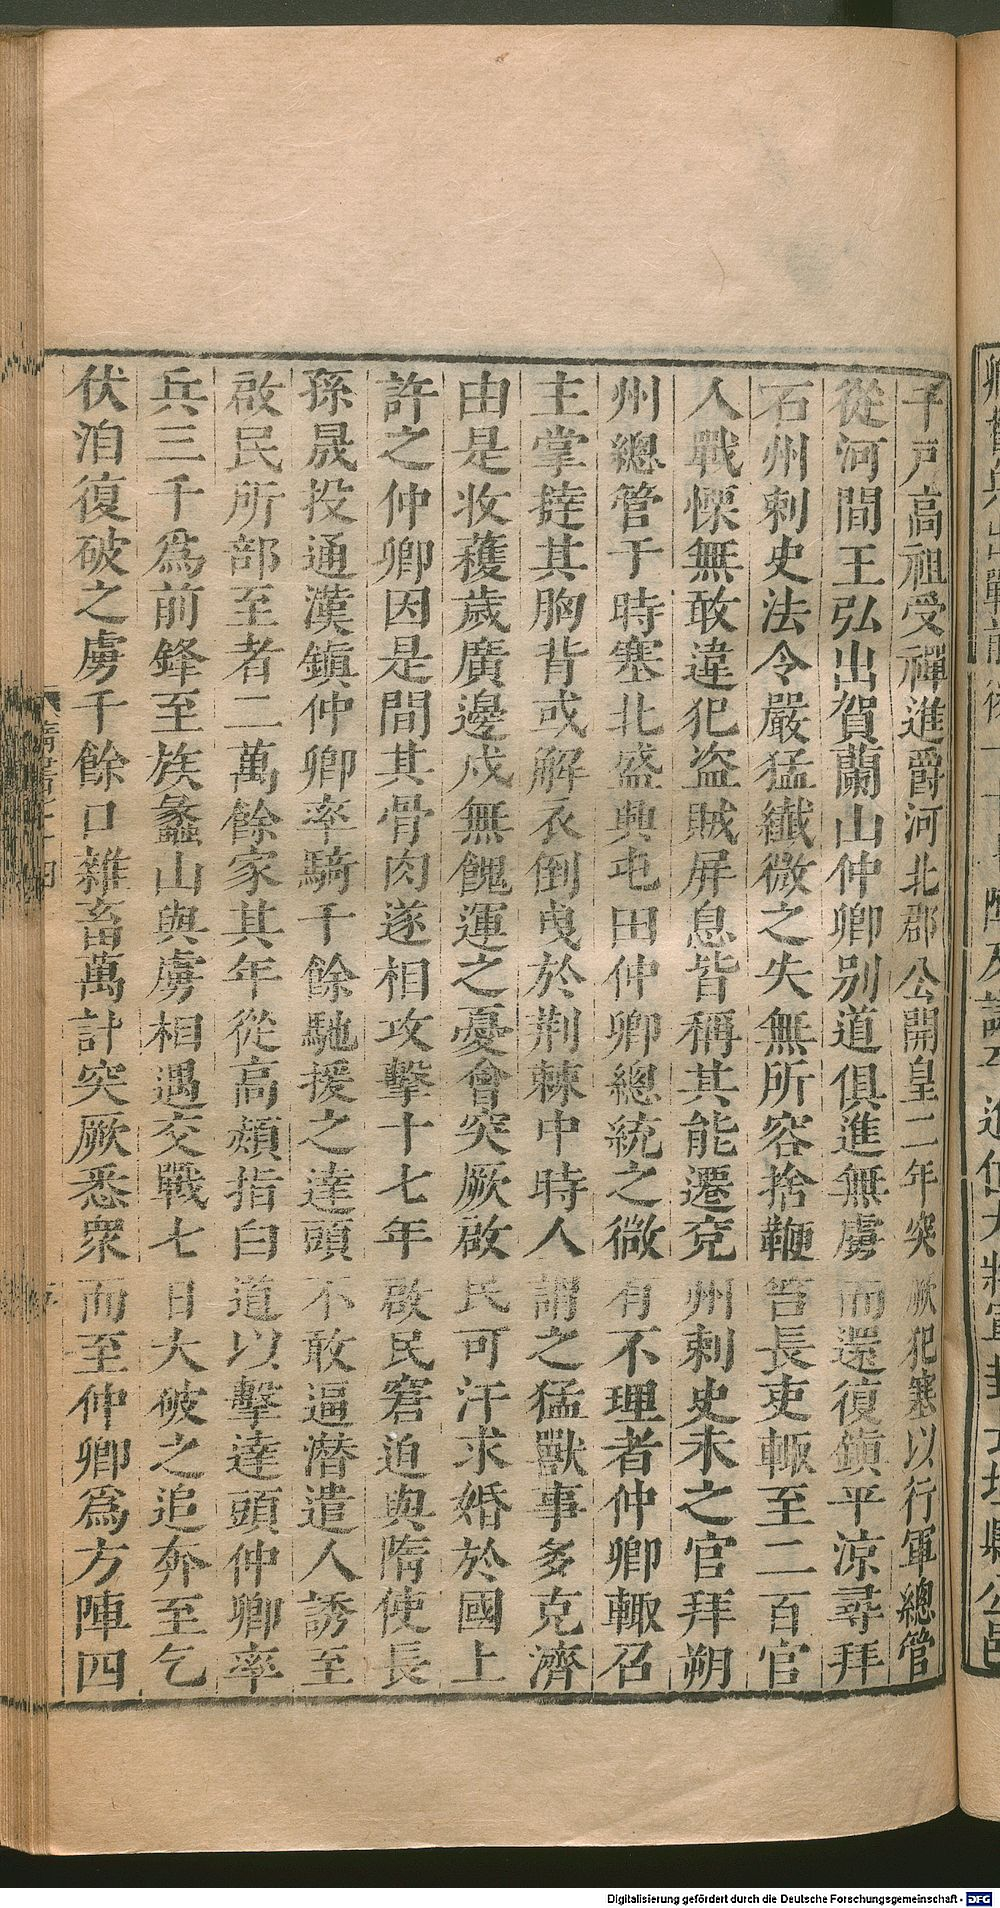 千戸高祖受禪進爵河北郡公開皇二年突厥犯塞以行軍總管
從河間王弘出賀蘭山仲卿別道俱進無虜而還復鎮平涼尋拜
石州刺史法令嚴猛纎微之失無所容捨鞭笞長吏輙至二百官
人戰慄無敢違犯盗賊屏息皆稱其能遷兖州刺史未之官拜朔
州總管于時塞北盛興屯田仲卿總統之微有不理者仲卿輙召
主掌撻其胸背或解衣倒曳於荆棘中時人謂之猛獸事多克濟
由是收穫歲廣邊戍無餽運之憂會突厥啟民可汗求婚於國上
許之仲卿因是間其骨肉遂相攻擊十七年啟民窘迫與隋使長
孫晟投通漢鎮仲卿率騎千餘馳援之達頭不敢逼潜遣人誘至
啟民所部至者二萬餘家其年從高熲指白道以擊達頭仲卿率
兵三千為前鋒至族蠡山與虜相遇交戰七日大破之追奔至乞
伏洎復破之虜千餘口雜畜萬計突厥悉衆而至仲卿為方陣四
隋書七十四
Digitalisierung gefördert durch die Deutsche Forschungsgemeinschaft - DFG